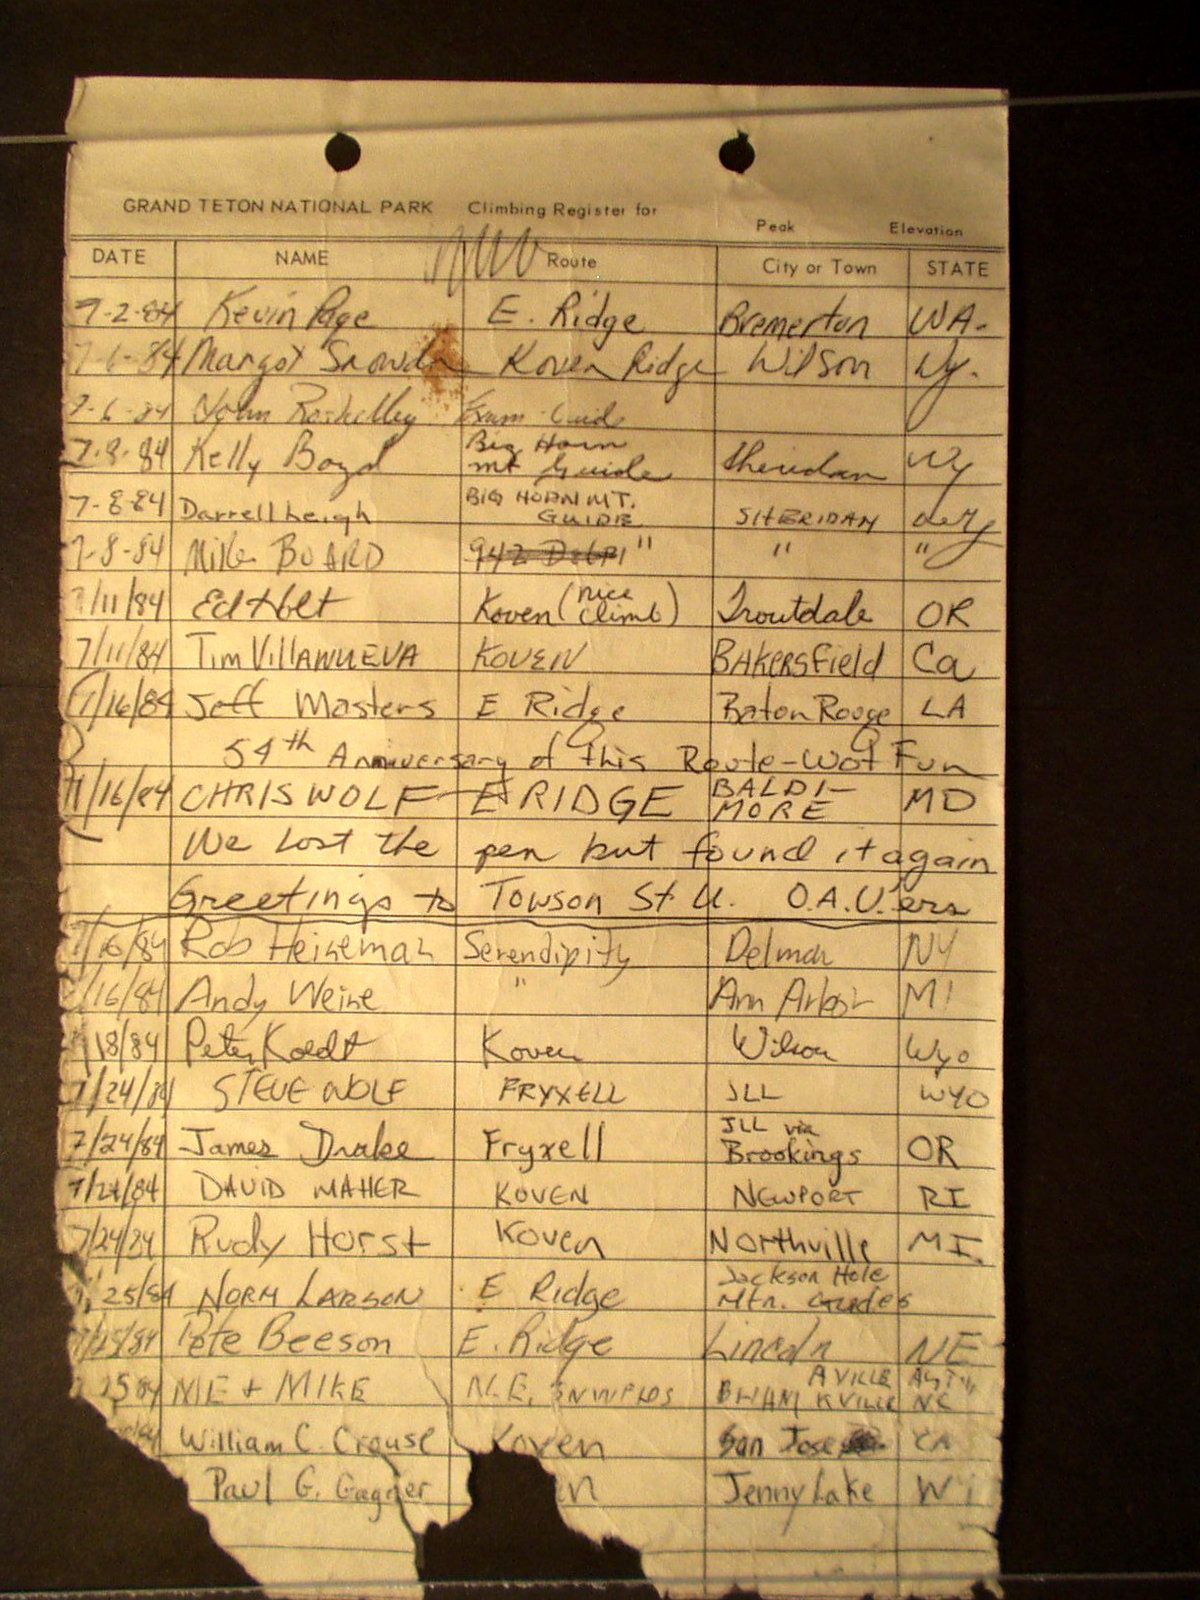 GRAND TETON NATIONAL PARK Climbing Register for
Peak Elevation
DATE NAME Route City or Town STATE
7-2-84 Kevin Page E. Ridge Bremerton WA.
7-6-84 Margot Snowdon Koven Ridge Wilson Wy.
7-6-84 John Roskelley Exum Guide
7-8-84 Kelly Boyd Big Horn mt Guide Sheridan Wy
7-8-84 Darrell Leigh BIG HORN MT. GUIDE SHERIDAN
7-8-84 Mike BOARD " " "
7/11/84 Ed Holt Koven (nice climb) Troutdale OR
7/11/84 Tim VillANUEVA KOVEN BAKERSField Ca
7/16/84 Jeff Masters E Ridge Baton Rouge LA
54th Anniversary of this Route-Wot Fun
7/16/84 CHRIS WOLF E RIDGE BALDI-MORE MD
We Lost the pen but found it again
Greetings to Towson St. U. O.A.U.'ers
7/16/84 Rob Heineman Serendipity Delmar NY
7/16/84 Andy Weine " Ann Arbor MI
7/18/84 Peter Koedt Koven Wilson Wyo
7/24/84 STEVE WOLF FRYXELL JLL WYO
7/24/84 James Drake Fryxell JLL via Brookings OR
7/24/84 DAVID MAHER KOVEN NEWPORT RI
7/24/84 Rudy Horst Koven Northville MI.
25/84 NORM LARSON E Ridge Jackson Hole Mtn. Guides
7/25/84 Pete Beeson E. Ridge Lincoln NE
25 84 ME + MIKE N.E. A VILLE BHAM KVILLE NC
William C. Crouse Koven San Jose CA
Paul G. Gagner en Jenny Lake Wy